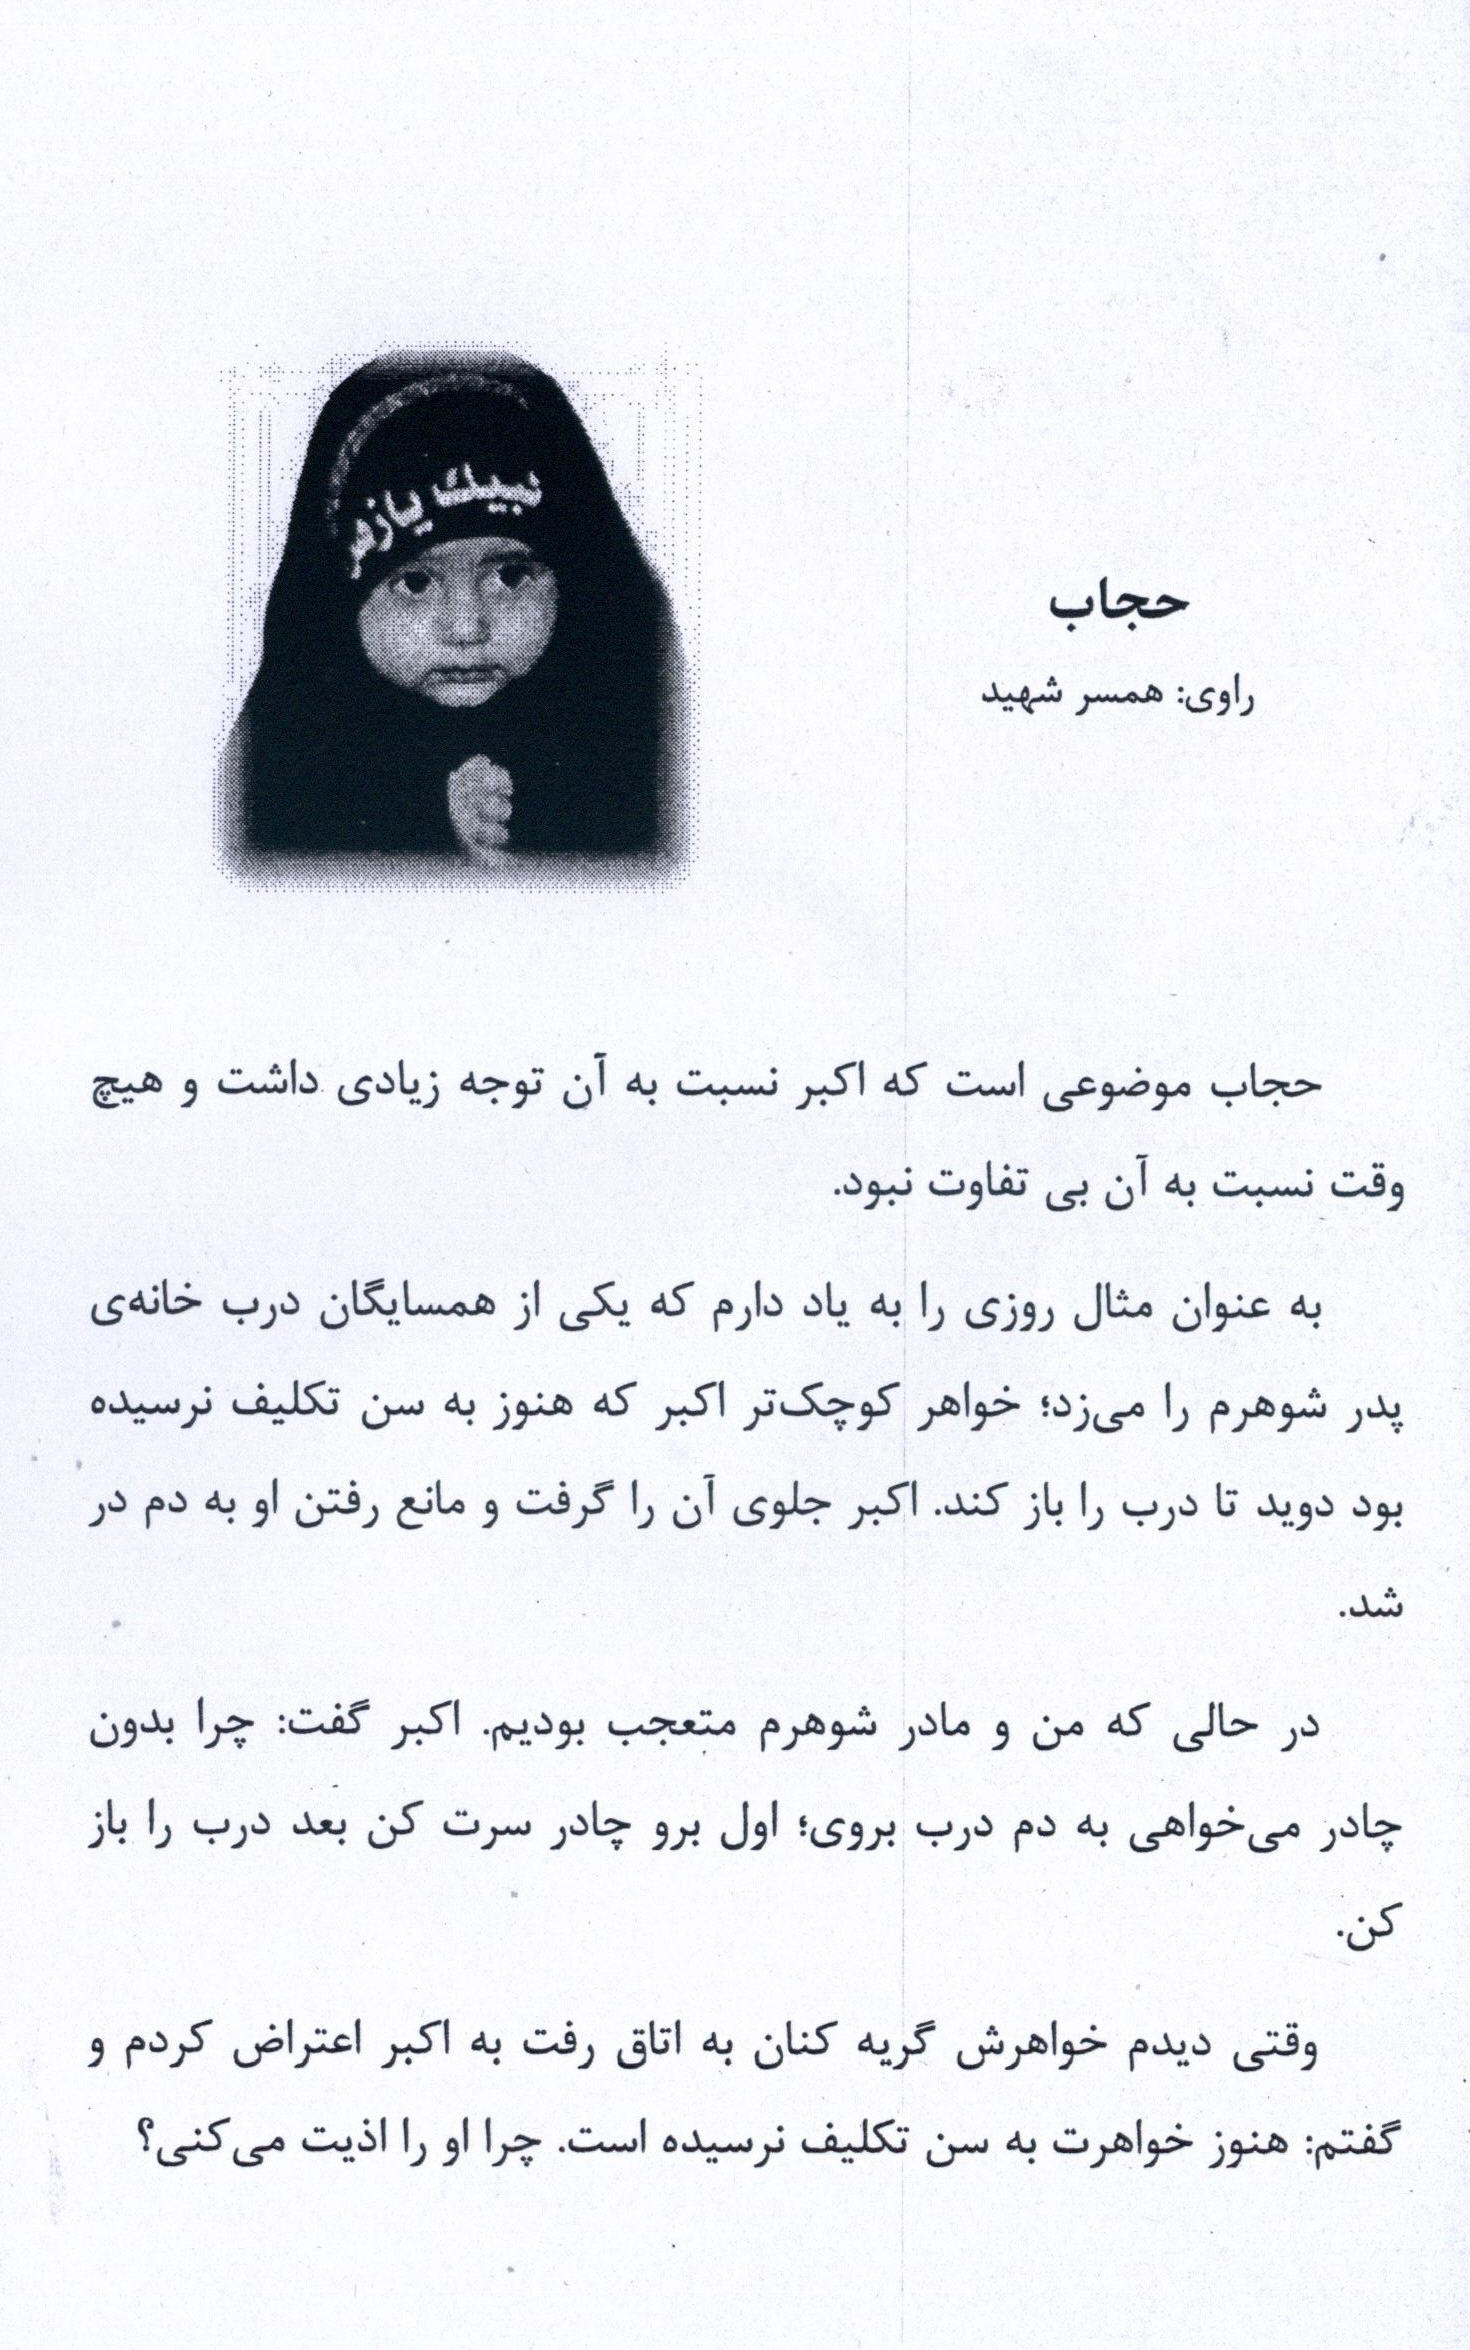 لبيك يازهر
حجاب
راوی: همسر شهید
حجاب موضوعی است که اکبر نسبت به آن توجه زیادی داشت و هیچ
وقت نسبت به آن بی تفاوت نبود.
به عنوان مثال روزی را به یاد دارم که یکی از همسایگان درب خانه‌ی
پدر شوهرم را می‌زد؛ خواهر کوچک‌تر اکبر که هنوز به سن تکلیف نرسیده
بود دوید تا درب را باز کند. اکبر جلوی آن را گرفت و مانع رفتن او به دم در
شد.
در حالی که من و مادر شوهرم متعجب بودیم. اکبر گفت: چرا بدون
چادر می‌خواهی به دم درب بروی؛ اول برو چادر سرت کن بعد درب را باز
کن.
وقتی دیدم خواهرش گریه کنان به اتاق رفت به اکبر اعتراض کردم و
گفتم: هنوز خواهرت به سن تکلیف نرسیده است. چرا او را اذیت می‌کنی؟